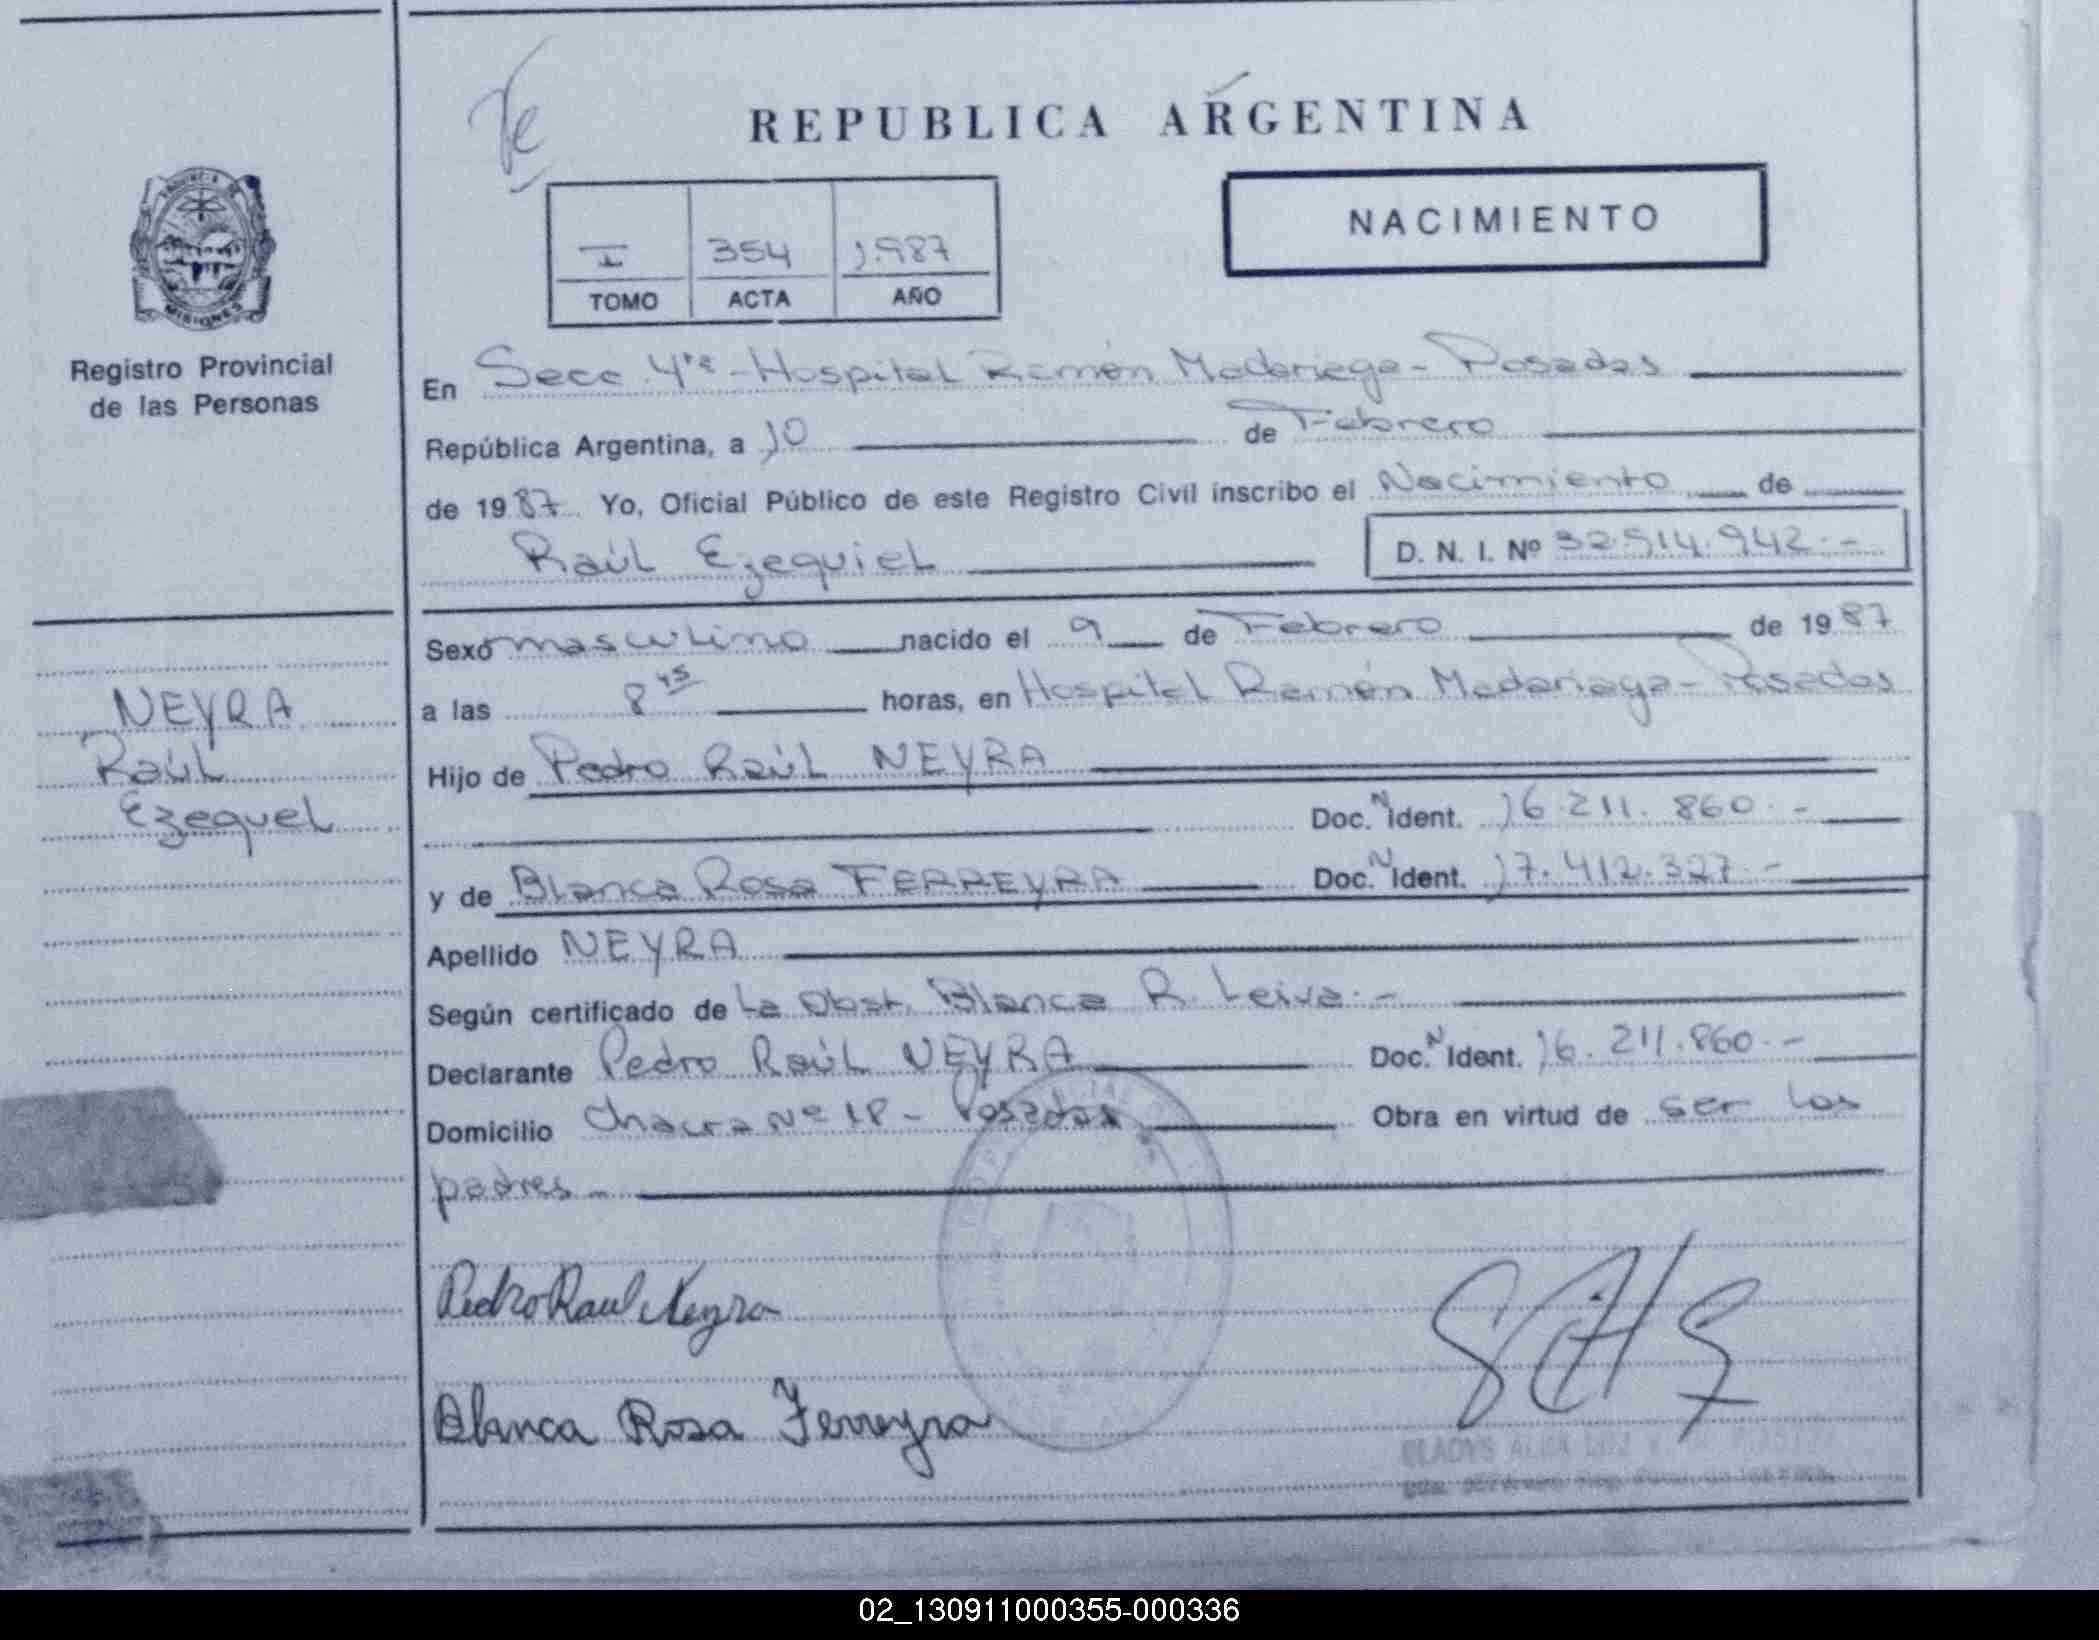 REPUBLICA ARGENTINA
NACIMIENTO
I 354 1.987
TOMO ACTA AÑO
PROVINCIA DE
MISIONES
Registro Provincial
de las Personas
En Secc. 4ta - Hospital Ramón Madariaga - Posadas
República Argentina, a 10 de Febrero
de 1987. Yo, Oficial Público de este Registro Civil inscribo el Nacimiento de
Raúl Ezequiel D. N. I. Nº 32.914.942.-
Sexo masculino nacido el 9 de Febrero de 1987
a las 8 45 horas, en Hospital Ramón Madariaga - Posadas
NEYRA
Raúl
Ezequel
Hijo de Pedro Raúl NEYRA
Doc. N Ident. 16.211.860.-
y de Blanca Rosa FERREYRA Doc. N Ident. 17.412.327.-
Apellido NEYRA
Según certificado de La Obst. Blanca R. Leiva.-
Declarante Pedro Raúl NEYRA Doc. N Ident. 16.211.860.-
Domicilio Chacra Nº 18 - Posadas Obra en virtud de ser los
padres -
Pedro Raul Neyra
Blanca Rosa Ferreyra
GLADYS ALBA
02_130911000355-000336